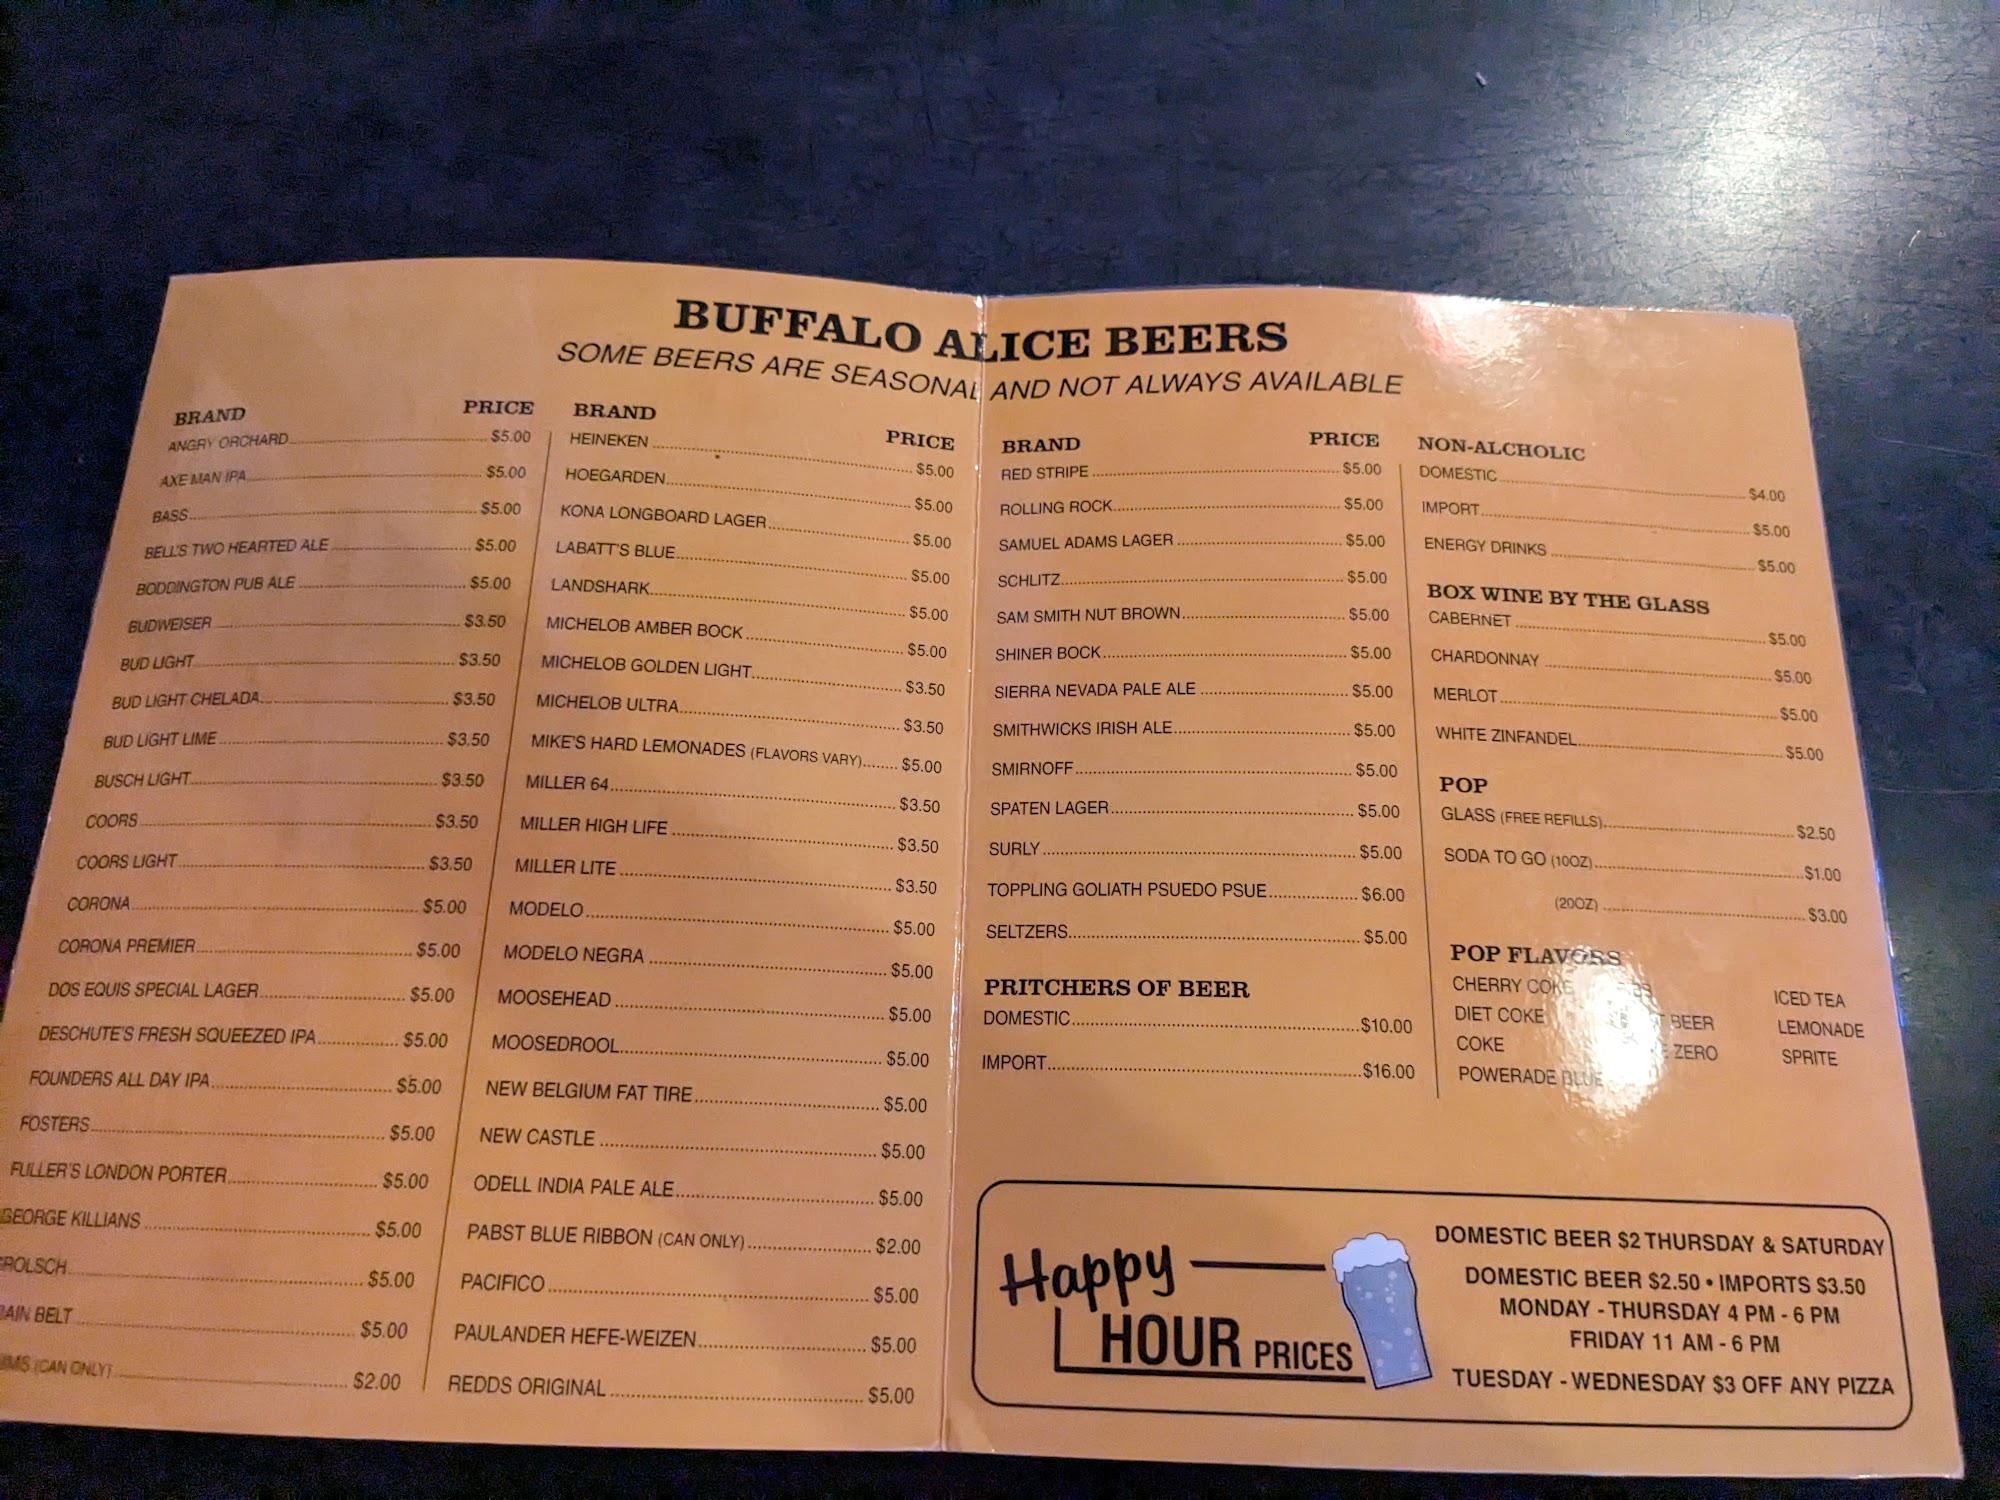 BUFFALO ALICE BEERS
SOME BEERS ARE SEASONAL AND NOT ALWAYS AVAILABLE
BRAND PRICE
ANGRY ORCHARD $5.00
AXE MAN IPA $5.00
BASS $5.00
BELL'S TWO HEARTED ALE $5.00
BODDINGTON PUB ALE $5.00
BUDWEISER $3.50
BUD LIGHT $3.50
BUD LIGHT CHELADA $3.50
BUD LIGHT LIME $3.50
BUSCH LIGHT $3.50
COORS $3.50
COORS LIGHT $3.50
CORONA $5.00
CORONA PREMIER $5.00
DOS EQUIS SPECIAL LAGER $5.00
DESCHUTE'S FRESH SQUEEZED IPA $5.00
FOUNDERS ALL DAY IPA $5.00
FOSTERS $5.00
FULLER'S LONDON PORTER $5.00
GEORGE KILLIANS $5.00
$5.00
BELT $5.00
(CAN ONLY) $2.00
BRAND PRICE
HEINEKEN $5.00
HOEGARDEN $5.00
KONA LONGBOARD LAGER $5.00
LABATT'S BLUE $5.00
LANDSHARK $5.00
MICHELOB AMBER BOCK $5.00
MICHELOB GOLDEN LIGHT $3.50
MICHELOB ULTRA $3.50
MIKE'S HARD LEMONADES (FLAVORS VARY) $5.00
MILLER 64 $3.50
MILLER HIGH LIFE $3.50
MILLER LITE $3.50
MODELO $5.00
MODELO NEGRA $5.00
MOOSEHEAD $5.00
MOOSEDROOL $5.00
NEW BELGIUM FAT TIRE $5.00
NEW CASTLE $5.00
ODELL INDIA PALE ALE $5.00
PABST BLUE RIBBON (CAN ONLY) $2.00
PACIFICO $5.00
PAULANDER HEFE-WEIZEN $5.00
REDDS ORIGINAL $5.00
BRAND PRICE
RED STRIPE $5.00
ROLLING ROCK $5.00
SAMUEL ADAMS LAGER $5.00
SCHLITZ $5.00
SAM SMITH NUT BROWN $5.00
SHINER BOCK $5.00
SIERRA NEVADA PALE ALE $5.00
SMITHWICKS IRISH ALE $5.00
SMIRNOFF $5.00
SPATEN LAGER $5.00
SURLY $5.00
TOPPLING GOLIATH PSUEDO PSUE $6.00
SELTZERS $5.00
PRITCHERS OF BEER
DOMESTIC $10.00
IMPORT $16.00
NON-ALCHOLIC
DOMESTIC $4.00
IMPORT $5.00
ENERGY DRINKS $5.00
BOX WINE BY THE GLASS
CABERNET $5.00
CHARDONNAY $5.00
MERLOT $5.00
WHITE ZINFANDEL $5.00
POP
GLASS (FREE REFILLS) $2.50
SODA TO GO (10OZ) $1.00
(20OZ) $3.00
POP FLAVORS
CHERRY COKE
DIET COKE
COKE
POWERADE BLUE
BEER
ZERO
ICED TEA
LEMONADE
SPRITE
Happy
HOUR PRICES
DOMESTIC BEER $2 THURSDAY & SATURDAY
DOMESTIC BEER $2.50 • IMPORTS $3.50
MONDAY - THURSDAY 4 PM - 6 PM
FRIDAY 11 AM - 6 PM
TUESDAY - WEDNESDAY $3 OFF ANY PIZZA